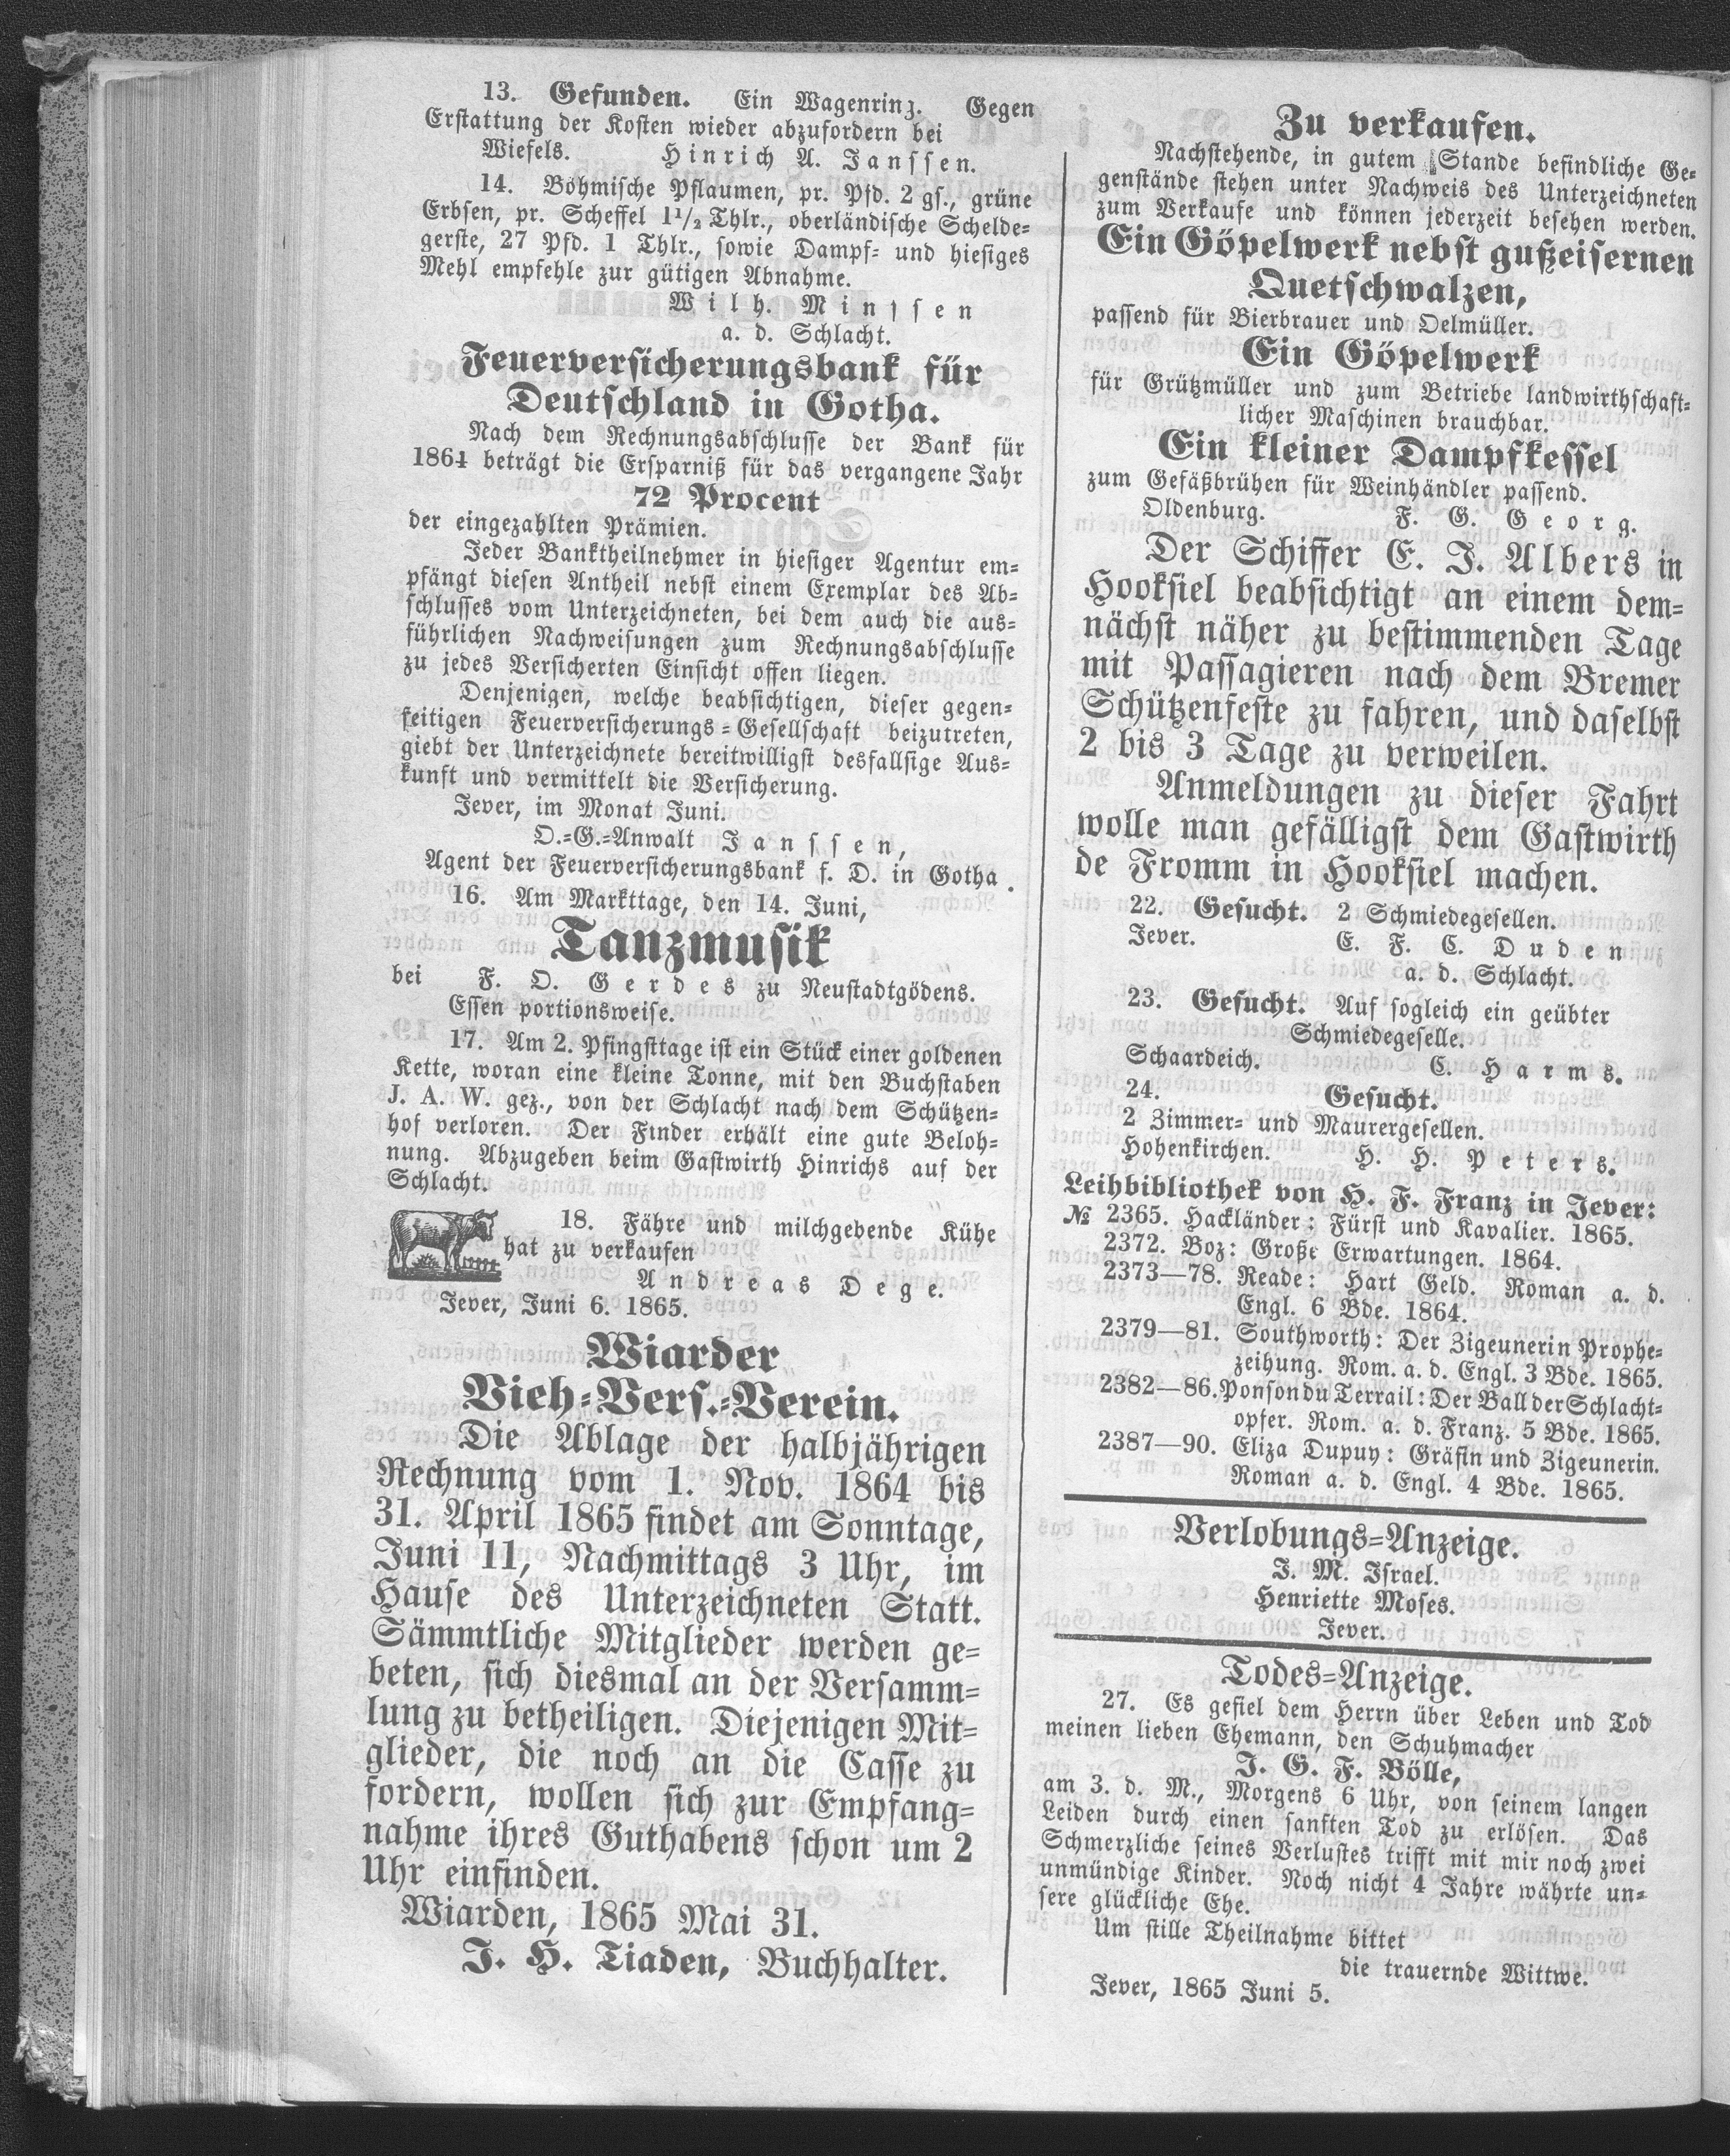 13. Gefunden. Ein Wagenring. Gegen
Erstattung der Kosten wieder abzufordern bei
Wiefels. Hinrich A. Janssen.
14. Böhmische Pflaumen, pr. Pfd. 2 gs., grüne
Erbsen, pr. Scheffel 1 1/2 Thlr., oberländische Schelde=
gerste, 27 Pfd. 1 Thlr., sowie Dampf= und hiesiges
Mehl empfehle zur gütigen Abnahme.
Wilh. Minssen
a. d. Schlacht.
Feuerversicherungsbank für
Deutschland in Gotha.
Nach dem Rechnungsabschlusse der Bank für
1864 beträgt die Ersparniß für das vergangene Jahr
72 Procent
der eingezahlten Prämien.
Jeder Banktheilnehmer in hiesiger Agentur em=
pfängt diesen Antheil nebst einem Exemplar des Ab=
schlusses vom Unterzeichneten, bei dem auch die aus=
führlichen Nachweisungen zum Rechnungsabschlusse
zu jedes Versicherten Einsicht offen liegen.
Denjenigen, welche beabsichtigen, dieser gegen=
seitigen Feuerversicherungs=Gesellschaft beizutreten,
giebt der Unterzeichnete bereitwilligst desfallsige Aus=
kunft und vermittelt die Versicherung.
Jever, im Monat Juni.
O.=G.=Anwalt Janssen,
Agent der Feuerversicherungsbank f. D. in Gotha.
16. Am Markttage, den 14. Juni,
Tanzmusik
bei F. O. Gerdes zu Neustadtgödens.
Essen portionsweise.
17. Am 2. Pfingsttage ist ein Stück einer goldenen
Kette, woran eine kleine Tonne, mit den Buchstaben
J. A. W. gez., von der Schlacht nach dem Schützen=
hof verloren. Der Finder erhält eine gute Beloh=
nung. Abzugeben beim Gastwirth Hinrichs auf der
Schlacht.
18. Fähre und milchgebende Kühe
hat zu verkaufen
Andreas Dege.
Jever, Juni 6. 1865.
Wiarder
Vieh=Vers.=Verein.
Die Ablage der halbjährigen
Rechnung vom 1. Nov. 1864 bis
31. April 1865 findet am Sonntage,
Juni 11, Nachmittags 3 Uhr, im
Hause des Unterzeichneten Statt.
Sämmtliche Mitglieder werden ge=
beten, sich diesmal an der Versamm=
lung zu betheiligen. Diejenigen Mit=
glieder, die noch an die Casse zu
fordern, wollen sich zur Empfang=
nahme ihres Guthabens schon um 2
Uhr einfinden.
Wiarden, 1865 Mai 31.
J. H. Tiaden, Buchhalter.
Zu verkaufen.
Nachstehende, in gutem Stande befindliche Ge=
genstände stehen unter Nachweis des Unterzeichneten
zum Verkaufe und können jederzeit besehen werden.
Ein Göpelwerk nebst gußeisernen
Quetschwalzen,
passend für Bierbrauer und Oelmüller.
Ein Göpelwerk
für Grützmüller und zum Betriebe landwirthschaft=
licher Maschinen brauchbar.
Ein kleiner Dampfkessel
zum Gefäßbrühen für Weinhändler passend.
Oldenburg. F. G. Georg.
Der Schiffer E. J. Albers in
Hooksiel beabsichtigt an einem dem=
nächst näher zu bestimmenden Tage
mit Passagieren nach dem Bremer
Schützenfeste zu fahren, und daselbst
2 bis 3 Tage zu verweilen.
Anmeldungen zu dieser Fahrt
wolle man gefälligst dem Gastwirth
de Fromm in Hooksiel machen.
22. Gesucht. 2 Schmiedegesellen.
Jever. E. F. C. Duden
a. d. Schlacht.
23. Gesucht. Auf sogleich ein geübter
Schmiedegeselle.
Schaardeich. C. Harms.
24. Gesucht.
2 Zimmer= und Maurergesellen.
Hohenkirchen. H. H. Peters.
Leihbibliothek von H. F. Franz in Jever:
№ 2365. Hackländer: Fürst und Kavalier. 1865.
2372. Boz: Große Erwartungen. 1864.
2373—78. Reade: Hart Geld. Roman a. d.
Engl. 6 Bde. 1864.
2379—81. Southworth: Der Zigeunerin Prophe=
zeihung. Rom. a. d. Engl. 3 Bde. 1865.
2382—86. Ponson du Terrail: Der Ball der Schlacht=
opfer. Rom. a. d. Franz. 5 Bde. 1865.
2387—90. Eliza Dupuy: Gräfin und Zigeunerin.
Roman a. d. Engl. 4 Bde. 1865.
Verlobungs=Anzeige.
J. M. Israel.
Henriette Moses.
Jever.
Todes=Anzeige.
27. Es gefiel dem Herrn über Leben und Tod
meinen lieben Ehemann, den Schuhmacher
J. G. F. Bölle,
am 3. d. M., Morgens 6 Uhr, von seinem langen
Leiden durch einen sanften Tod zu erlösen. Das
Schmerzliche seines Verlustes trifft mit mir noch zwei
unmündige Kinder. Noch nicht 4 Jahre währte un=
sere glückliche Ehe.
Um stille Theilnahme bittet
die trauernde Wittwe.
Jever, 1865 Juni 5.